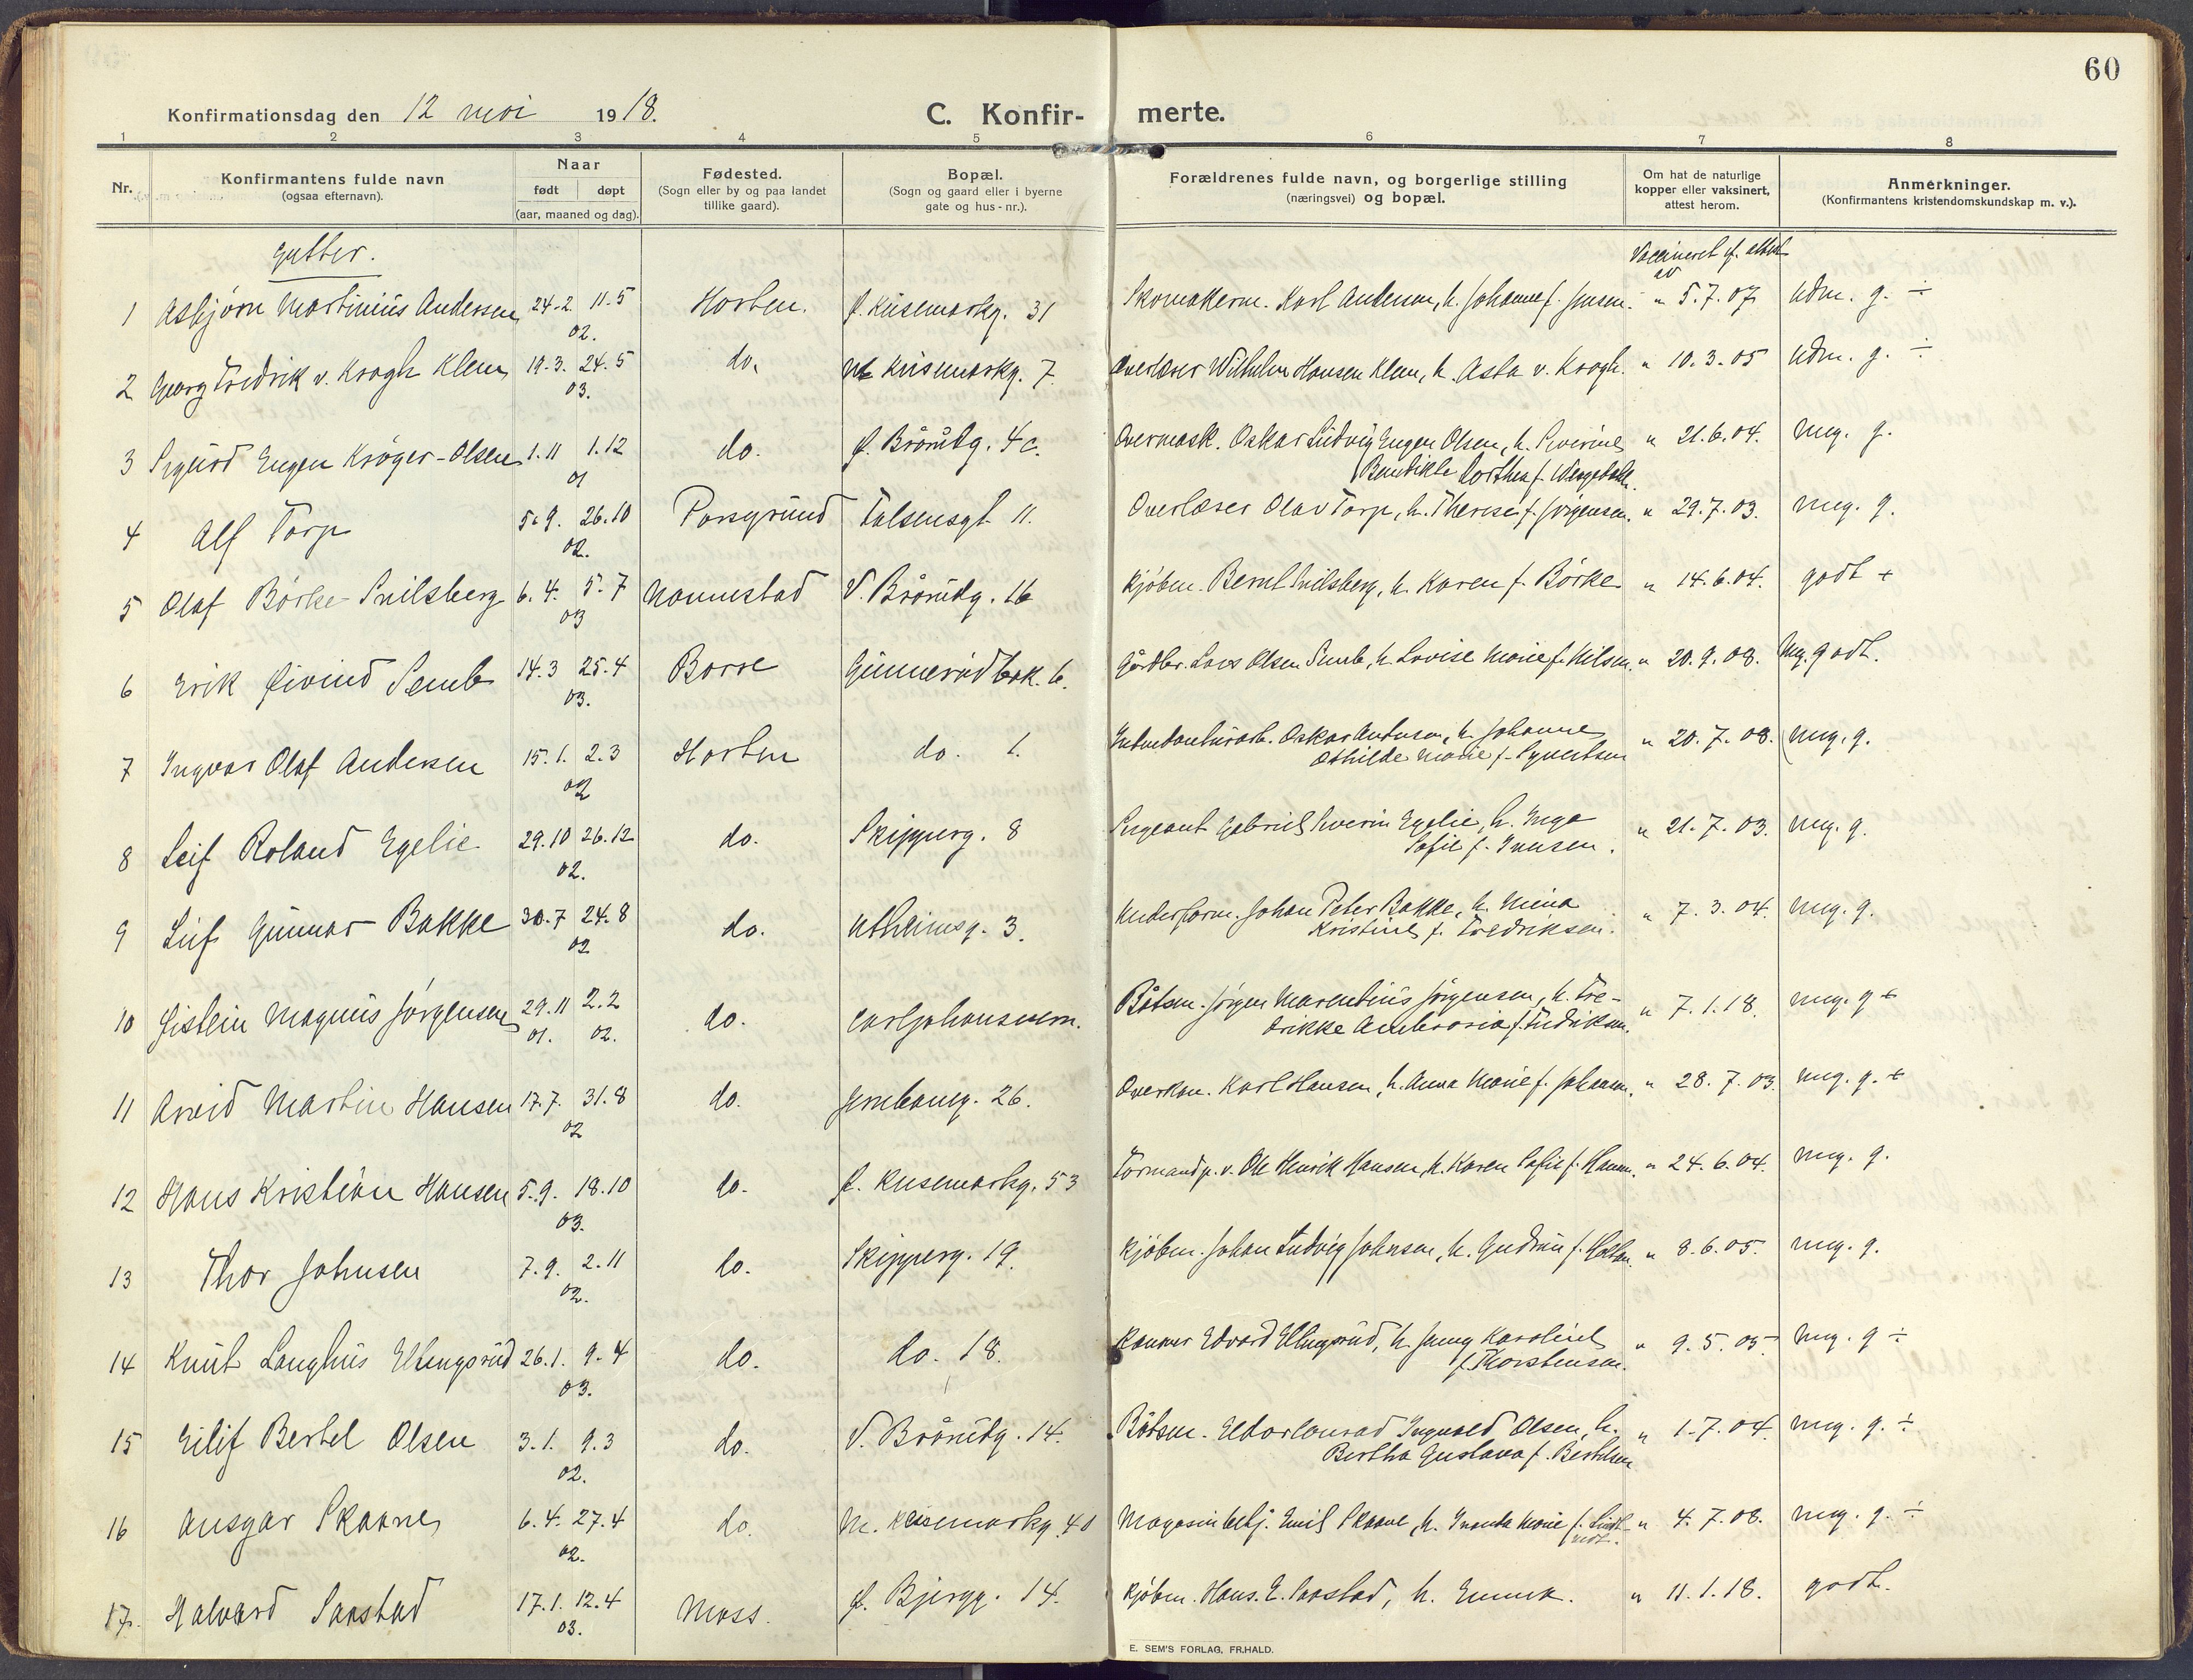 60
Konfirmationsdag den 12 mai 1918.
C. Konfir- merte.
1 2 3 4 5 6 7 8
Nr.
Konfirmantens fulde navn
(ogsaa efternavn).
Naar
født døpt
(aar, maaned og dag).
Fødested.
(Sogn eller by og paa landet
tillike gaard).
Bopæl.
(Sogn og gaard eller i byerne
gate og hus-nr.).
Forældrenes fulde navn, og borgerlige stilling
(næringsvei) og bopæl.
Om hat de naturlige
kopper eller vaksinert,
attest herom.
Anmerkninger.
(Konfirmantens kristendomskundskap m. v.).
Gutter.
Vaccineret if. attest
av
1 Asbjörn Martinius Andersen 24.2 11.5 Horten. Ø. Keisemarkg. 31 Skomakerm. Karl Andersen, h. Johanne f. Jensen. " 5.7.07. Udm. g. ÷
02.
2 Georg Fredrik v. Krogh Klem 19.3. 24.5 do. M. Keisemarkg. 7. Overlærer Wilhelm Hansen Klem, h. Asta v. Krogh. " 10.3.05 Udm. g. ÷
03.
3 Sigurd Eugen Kröger-Olsen 1.11 1.12 do. Ø. Bråroutg. 4c. Overmask. Oskar Ludvig Eugen Olsen, h. Severine " 21.6.04. Mg. g.
01
Benedikte Dorthea f.
4 Alf Torp 5.9. 26.10 Porsgrund Falsensgt 11. Overlærer Olav Torp, h. Therese f. Jörgensen. " 29.7.03. Mg. g.
02.
5 Olaf Börke Snilsberg 6.4. 5.7 Nannestad V. 16 Kjöbm. Bernt Snilsberg, h. Karen f. Börke " 14.6.04. godt +
03
6 Erik Øivind Semb 14.3 25.4 Borre Gunnerödbak. 6. Gårdbr. Lars Olsen Semb, h. Lovise Marie f. Nilsen. " 20.9.08. Mg. godt.
03.
7 Ingvar Olaf Andersen 15.1. 2.3 Horten do. 1. Oskar Andersen, h. Johanne " 20.7.08. Mg. g.
02
Othilde Marie f. Syvertsen
8 Leif Roland Egelie 29.10 26.12 do. Skipperg. 8 Sergeant Gabriel Severin Egelie, h. Inga " 21.7.03. Mg. g.
02.
Sofie f. Iversen.
9 Leif Gunnar Bakke 30.7 24.8 do. Utheimsg. 3. Underform. Johan Peter Bakke, h. Mina " 7.3.04. Mg. g.
02
Kristine f. Fredriksen.
10 Øistein Magnus Jörgensen 29.11 2.2 do. Carljohansvern. Båtsm. Jörgen Marentius Jörgensen, h. Fre- " 7.1.18. Mg. g +
01. 02.
drikke Ambrosia f. Fredriksen.
11 Arvid Martin Hansen 17.7. 31.8 do. Jernbaneg. 26. Overkan. Karl Hansen, h. Anna Marie f. Johansen. " 28.7.03. Mg. g. +
02
12 Hans Kristian Hansen 5.9. 18.10 do. Ø. Keisemarkg. 53 Formand p. v. Ole Henrik Hansen, h. Karen Sofie f. Hansen. " 24.6.04. Mg. g.
03.
13 Thor Johnsen 7.9. 2.11 do. Skipperg. 19. Kjöbm. Johan Ludvig Johnsen, h. Gudrun f. " 8.6.05. Mg. g.
02.
14 Knut Langhus Ellingsrud 26.1. 9.4 do. do. 18. Kanoner Edvard Ellingsrud, h. Jenny Karoline " 9.5.05 Mg. g ÷
03.
f. Thorstensen.
15 Eilif Bertel Olsen 3.1. 9.3 do. V. 14. Båtsm. Eldor Conrad Ingvald Olsen, h. " 1.7.04. Mg. g. ÷
02.
Bertha Gustava f. Bertelsen
16 Ansgar Skaane 6.4. 27.4 do. M. Keisemarkg. 40 Magasinbetj. Emil Skaane, h. Marie f. " 4.7.08. Mg. g. ÷
02.
17. Halvard Saxstad 17.1. 12.4 Moss. Ø. Bjergg. 14. Kjöbm. Hans. E. Saxstad, h. Emma. " 11.1.18. godt.
03.
E. SEM'S FORLAG, FR.HALD.